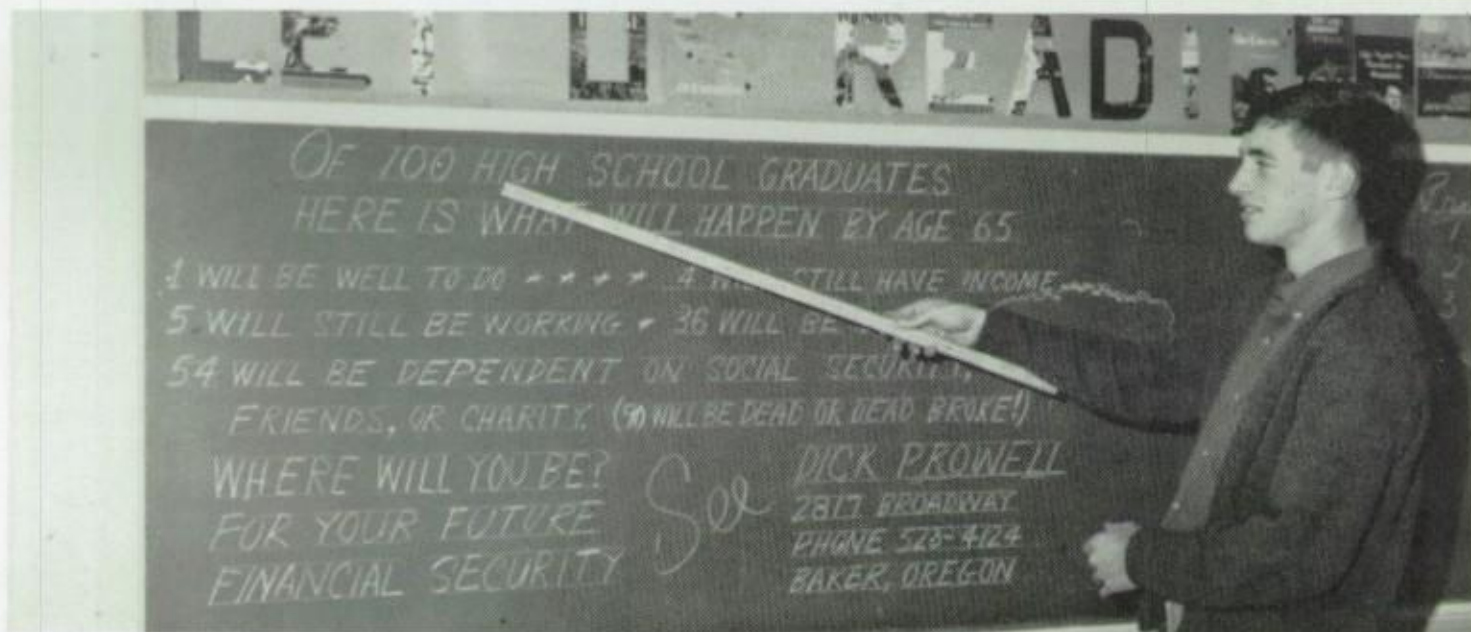 LET US READ
OF 100 HIGH SCHOOL GRADUATES
HERE IS WHAT WILL HAPPEN BY AGE 65
1 WILL BE WELL TO DO * * * * * 4 STILL HAVE INCOME
5 WILL STILL BE WORKING * 36 WILL BE
54 WILL BE DEPENDENT ON SOCIAL SECURITY,
FRIENDS, OR CHARITY. (90 WILL BE DEAD OR DEAD BROKE!)
WHERE WILL YOU BE?
FOR YOUR FUTURE
FINANCIAL SECURITY
See
DICK PROWELL
2817 BROADWAY
PHONE 523-4124
BAKER, OREGON
1
2
3